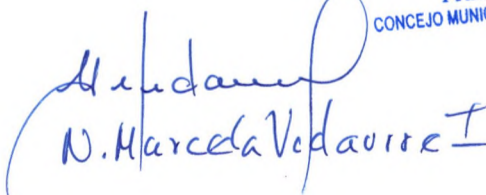 CONCEJO MUNIC
N. Marcela Vidaurre I